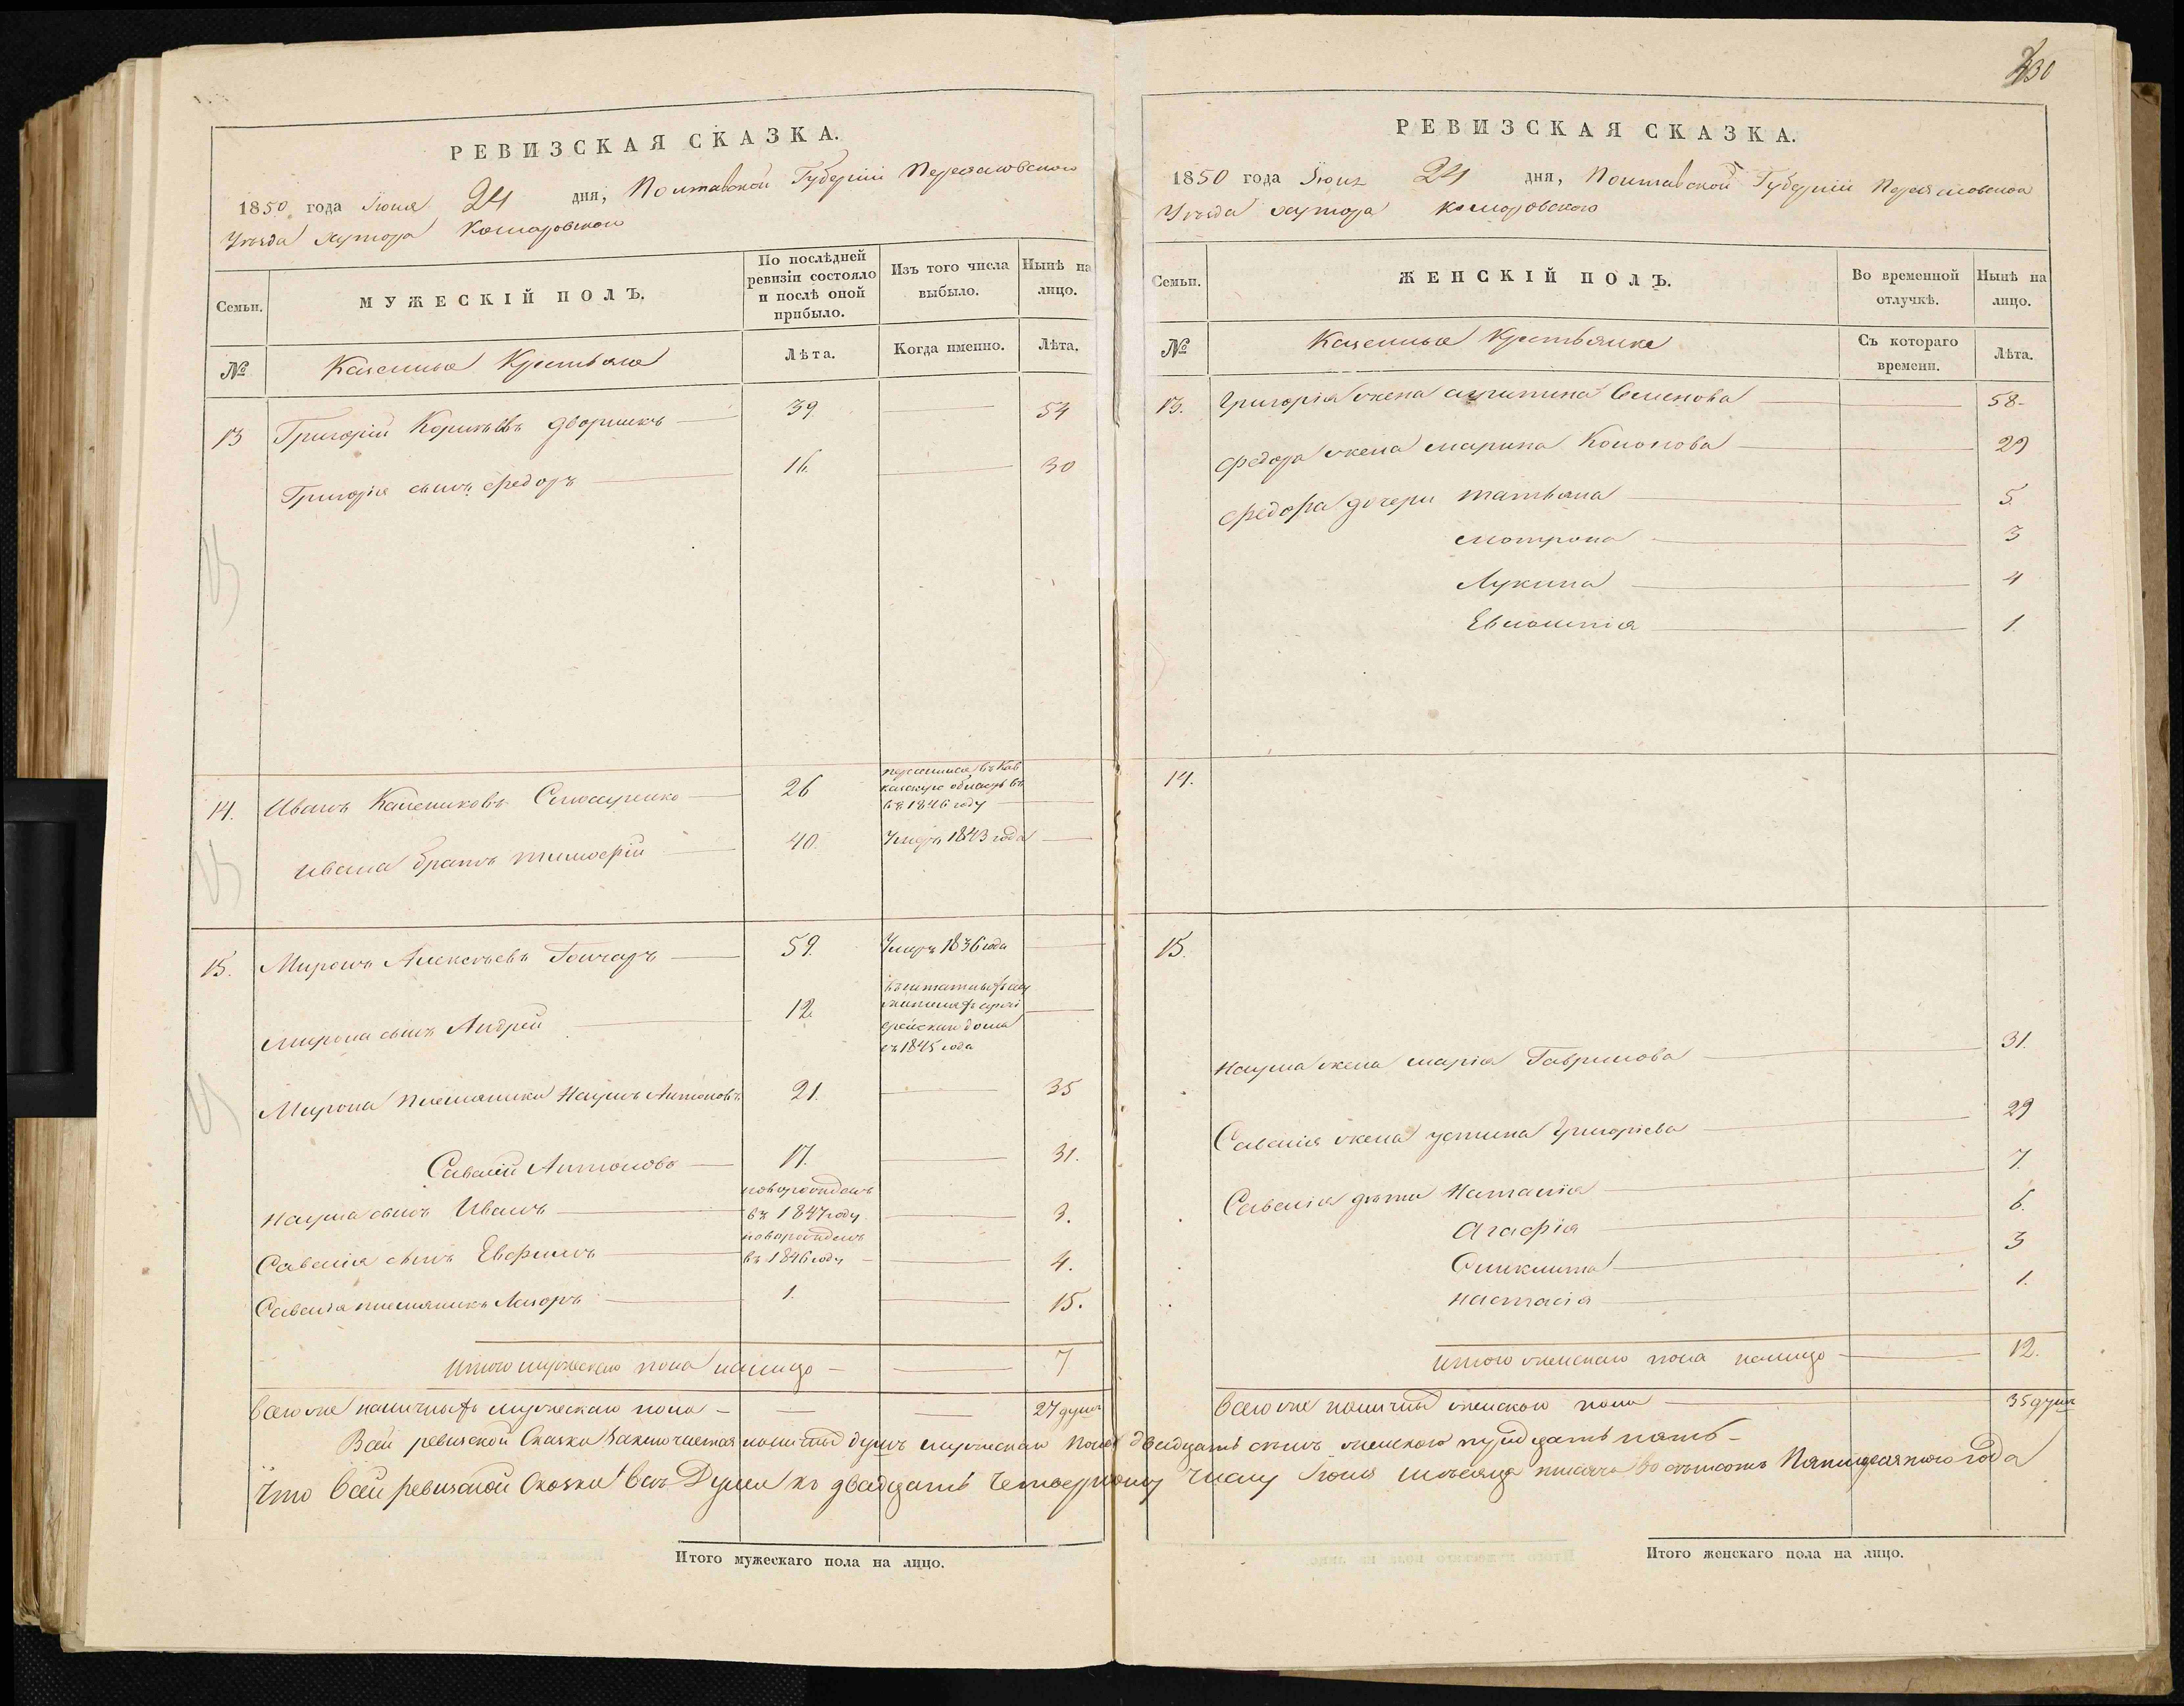 РЕВИЗСКАЯ СКАЗКА.
1850 года Іюня 24 дня, Полтавской Губерніи Переясловского
Уезда хутора Комаровского
Семьи.
МУЖЕСКІЙ ПОЛЪ.
По послѣдней ревизіи состояло и послѣ оной прибыло.
Изъ того числа выбыло.
Нынѣ на лицо.
№
Казенные Крестьяне
Лѣта.
Когда именно.
Лѣта.
13 Григорій дворникъ 39. 54
Григорія сынъ Федоръ 16. 30
14. Иванъ 26 въ 1846 году
Ивана братъ Тимофій 40. Умеръ 1843 года
15. Миронъ Алексѣевъ Гончаръ 59. Умеръ 1836 года
Мирона сынъ Андрей 12. дома съ 1845 года
Мирона племяники Наумъ Антоновъ 21. 35
Саваній Антоновъ 17. 31.
Наума сынъ Иванъ новорожденъ въ 1847 году 3.
Саванія сынъ Евфимъ новорожденъ въ 1846 году 4.
Саванія племяникъ 1. 15.
Итого мужескаго пола налицо 7
Всего же наличныхъ мужескаго пола 27 душъ
Итого мужескаго пола на лицо.
30
РЕВИЗСКАЯ СКАЗКА.
1850 года Іюня 24 дня, Полтавской Губерніи
Уезда хутора Комаровского
Семьи.
ЖЕНСКІЙ ПОЛЪ.
Во временной отлучкѣ.
Нынѣ на лицо.
№
Казенные Крестьянке
Съ котораго времени.
Лѣта.
13. Григорія жена Агрипина Семенова 58
Федора жена Марина Кононова 29
Федора дочери Татьяна 5.
Мотрона 3
Лукина 4
1.
14.
15.
Наума жена Марія Гаврилова 31.
Саванія жена Устина Григоріева 29
Саванія дѣти Наталія 7.
Агафія 6.
Синклита 3
Настасія 1.
Итого женскаго пола налицо 12.
Всего же наличныхъ женского пола 35 душъ
Всей ревизской Сказки Заключается наличныхъ душъ мужескаго пола двадцать семь женского тридцать пять
Что всей ревизской Сказки всѣ Души къ двадцать Четвертому Числу Іюня месяца тысяча восемьсотъ Пятидесятого года
Итого женскаго пола на лицо.